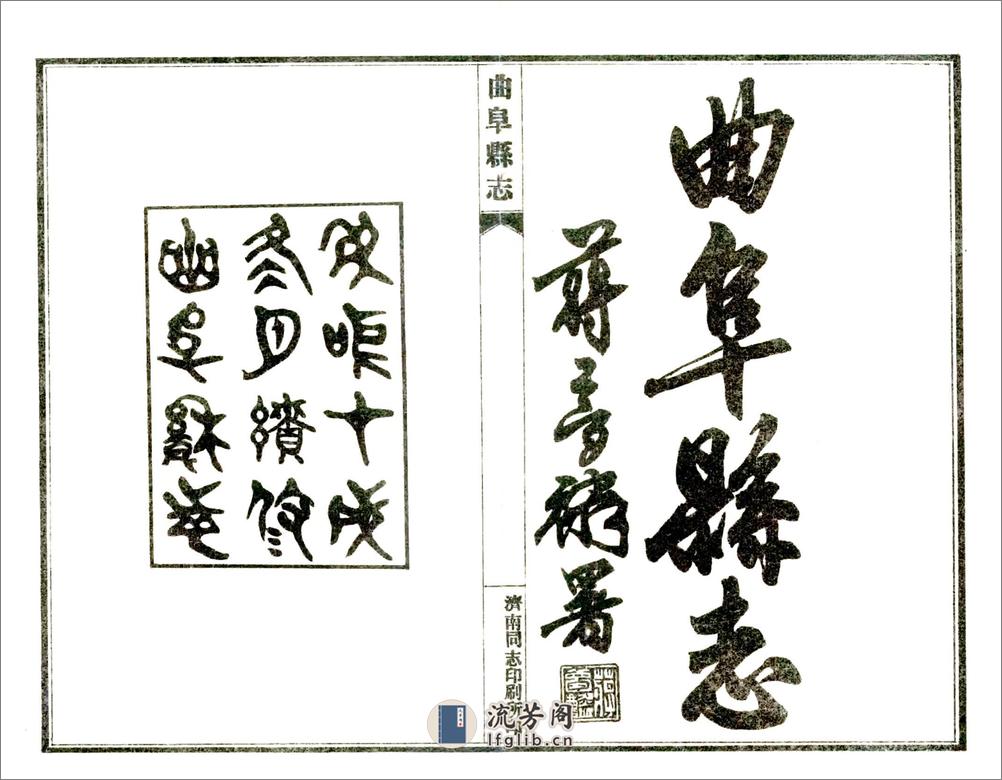 曲阜縣志
蔣
署
曲阜縣志
濟南同志印刷所
十
冬月續修
曲阜縣志
流芳阁
lfglib.cn